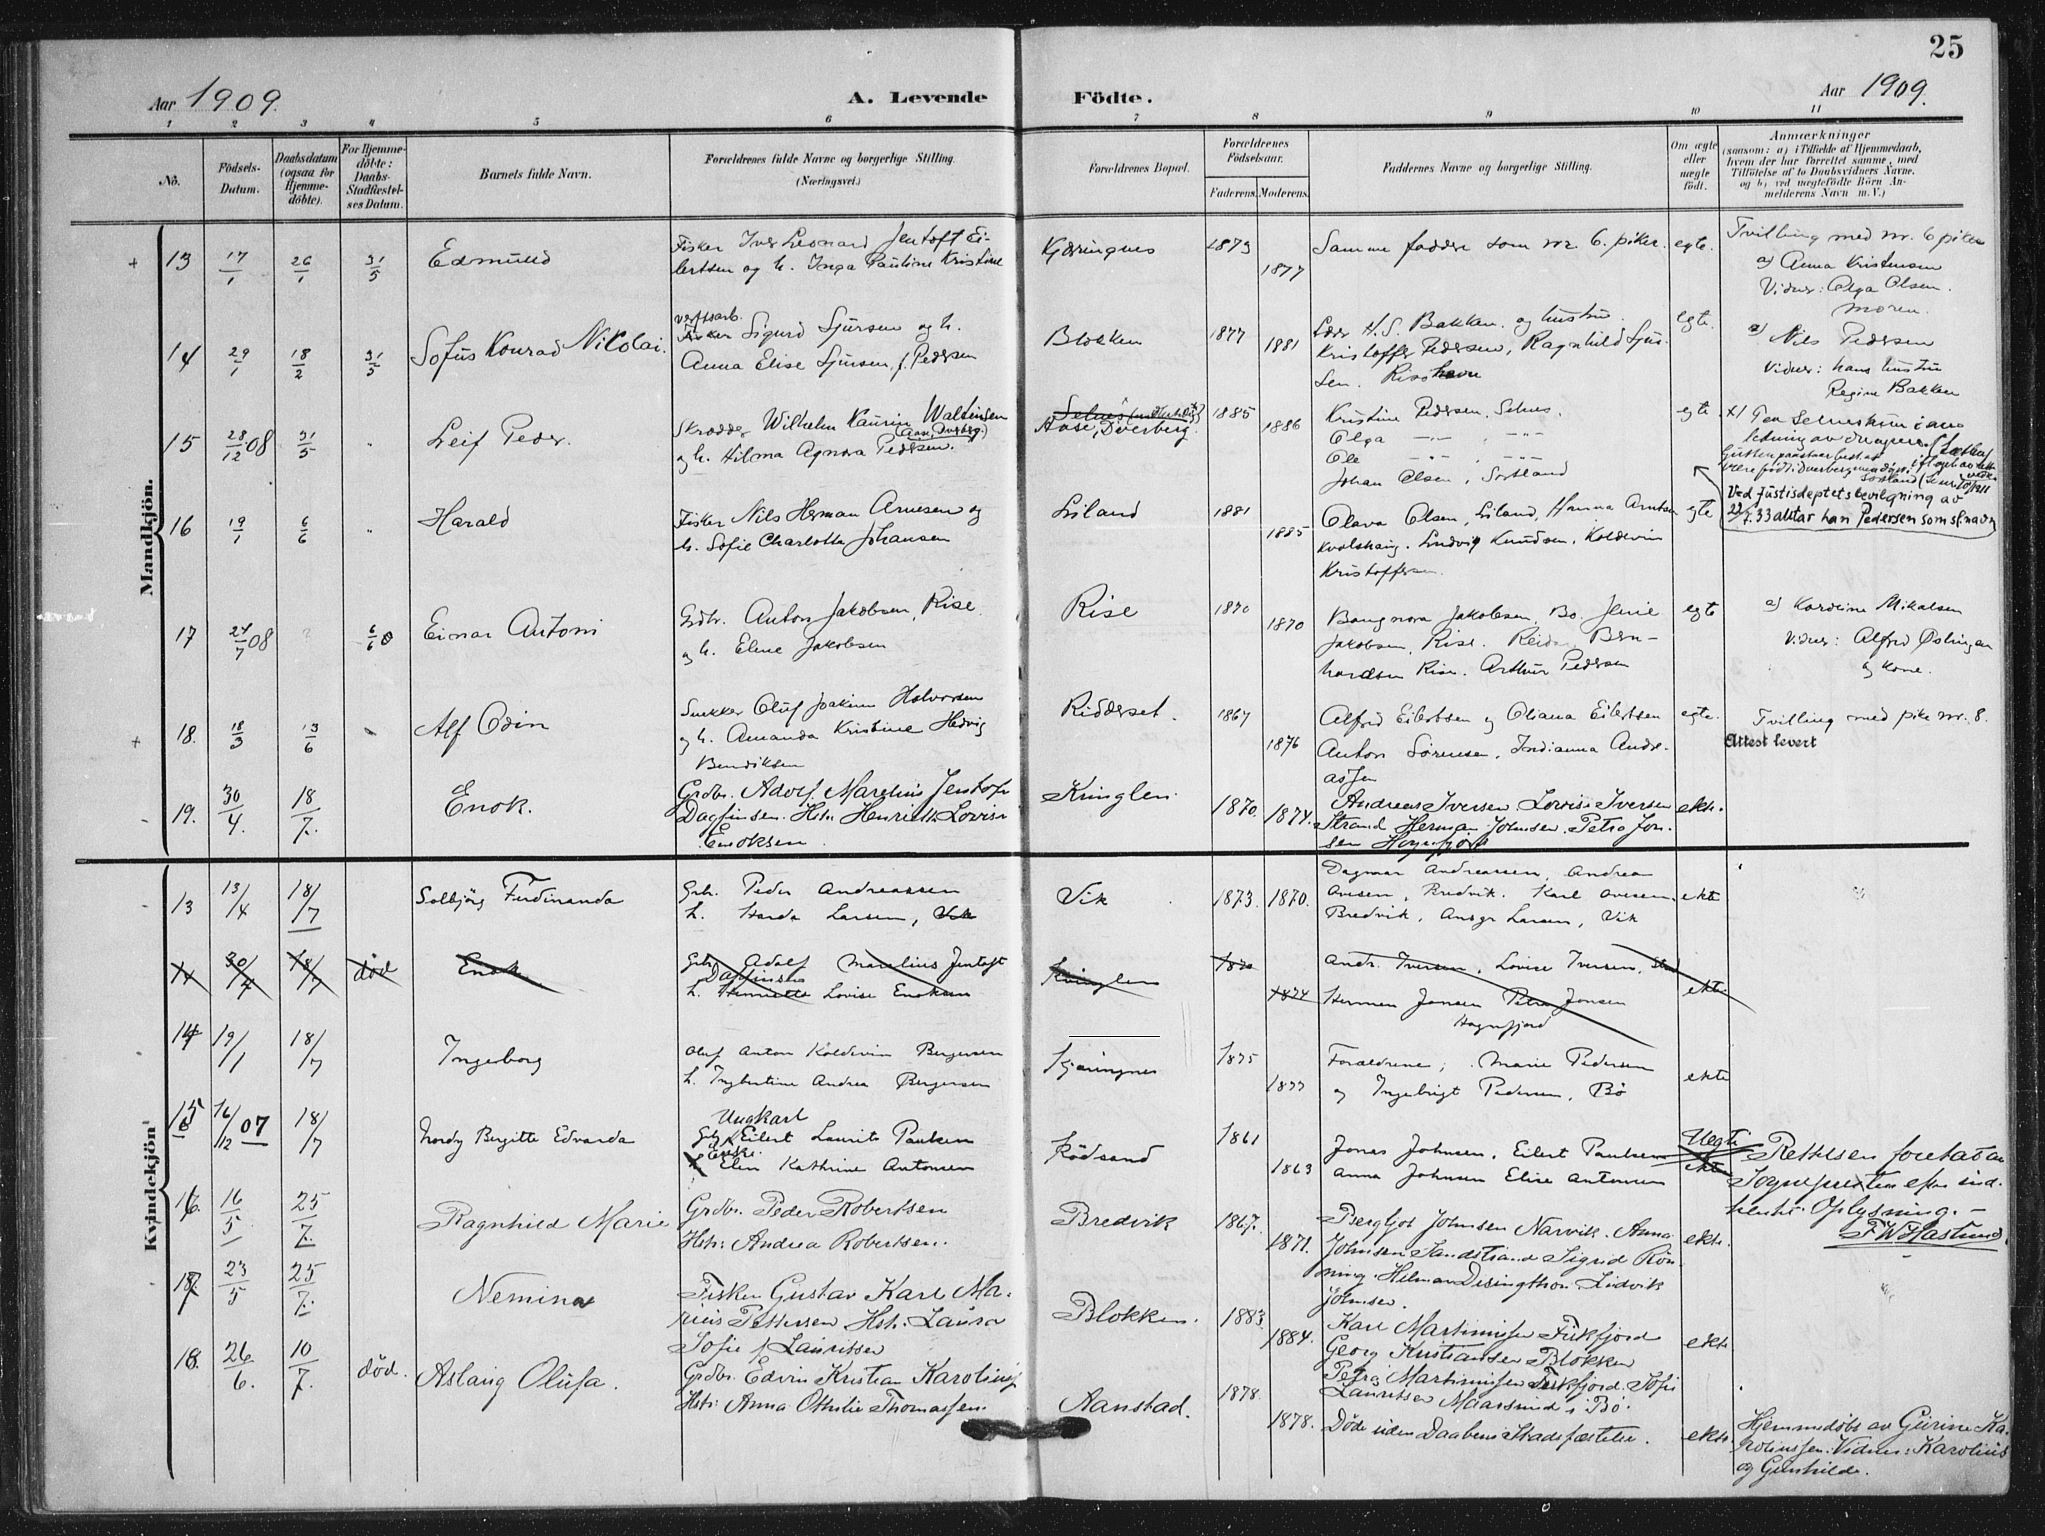 25
Aar 1909.
A. Levende
Födte.
Aar 1909.
1 2 3 4 5 6 7 8 9 10 11
No.
Födsels-
Datum.
Daabsdatum
(ogsaa for
Hjemme-
döbte).
For Hjemme-
döbte:
Daabs-
Stadfæstel-
ses Datum.
Barnets fulde Navn.
Forældrenes fulde Navne og borgerlige Stilling.
(Næringsvei.)
Forældrenes Bopæl.
Forældrenes
Födselsaar.
Faderens.
Moderens.
Faddernes Navne og borgerlige Stilling.
Om ægte
eller
uægte
födt.
Anmærkninger
(saasom: a) i Tilfælde af Hjemmedaab,
hvem der har forrettet samme, med
Tilföielse af to Daabsvidners Navne,
og b) ved uægtefödte Börn An-
melderens Navn m. V.)
Mandkjön.
13 17/1 26/1 31/5 Edmund
Fisker Iver Leonard Jentoft Ei-
lertsen og h. Inga Pauline Kristine
Kjæringnes 1873 1877
Samme faddere som nr. 6. piker. egte.
Tvilling med nr. 6 piker
a) Anna Kristensen
Vidner: Olga Olsen.
moren.
14 29/1 18/2 31/5 Sofus Konrad Nikolai.
verftsarb.
Fisker Sigurd Sjursen og h.
Anna Elise Sjursen, f. Pedersen
Blokken 1877 1881
Lærer H. S. Bakken og hustru.
Kristoffer Pedersen, Ragnhild Sjur-
sen. Risehavn
egte.
a) Nils Pedersen
Vidner: hans hustru
Regine Bakken
15 28/12 08 31/5 " Leif Peder.
Skrædder Wilhelm Kaurin Waltinsen
(Aase, Dverberg.)
og h. Hilma Agnora Pedersen.
Selnes
Aase, Dverberg. 1885 1886
Kristine Pedersen, Selnes.
Olga —"— , —"—
Ole —"— , —"—
Johan Olsen, Sortland
egte
Ved Justisdeptets bevilgning av
22/7.33 aktar han Pedersen som sl.navn
16 19/1 6/6 " Harald
Fisker Nils Herman Arnesen og
h. Sofie Charlotte Johansen
Liland 1881 1885
Olava Olsen, Liland, Hanna Arntsen
Kvalshaug. Ludvig Knudsen, Koldevin
Kristoffersen.
egte
17 24/7 08 ? 6/6 0 Einar Antoni
Grdbr. Anton Jakobsen, Rise.
og h. Elene Jakobsen
Rise 1870 1870
Bangnora Jakobsen, Bo. Jenie
Jakobsen, Rise. Reidar Bern-
hardsen Rise. Arthur Pedersen
egte
a) Karoline Mikalsen
Vidner: Alfred Østingen
og kone.
18. 18/3 13/6 Alf Odin
Snekker Oluf Joakim Halvorsen
og h. Amanda Kristine Hedvig
Bendiksen
Ridderset. 1867 1876
Alfred Eilertsen og Oliana Eilertsen
Anton Sørensen, Indianna Andre-
assen
egte.
Tvilling med pike nr. 8.
Attest levert
19. 30/4. 18/7. Enok.
Grdbr. Adolf Marelius Jentoft
Dagfinsen. Hstr. Henriette Lovise
Enoksen.
Kringlen 1870. 1874.
Andreas Iversen Lovise Iversen
Strand Herman Johnsen. Petra Jon-
sen Hognfjord
ekte.
Kvindekjön
13 13/4 18/7 Solbjörg Ferdinanda
Grb. Peder Andreassen
h. Harda Larsen, Vik
Vik 1873. 1870.
Dagmar Andreassen, Andrea
Avesen, Bredvik. Karl Avesen
Bredvik, Ansgr Larsen, Vik
ekte
14 30/4 18/7 død Enok.
Grb. Adolf Marelius Jentoft
Dagfinsen
h. Henriette Lovise Enoksen
Kringlen 1870 1874
Andr. Iversen, Lovise Iversen,
Herman Jonsen Petra Jonsen
Hognfjord
ekte
14 19/1 18/7 Ingeborg
Oluf Anton Koldevin Bergersen
h. Ingbertine Andrea Bergersen
Kjæringnes 1875 1877
Forældrene; Marie Pedersen
og Ingebrigt Pedersen, Bö
ekte
15 16/12 07 18/7 Nordy Bergitte Edvarda
Ungkarl
Eilert Laurits Paulsen
Enke.
Elen Kathrine Antonsen
Rödsand 1861 1863
Jonas Johnsen, Eilert Paulsen
Anna Johnsen Elise Antonsen
Uegte
ekte
Rettelsen foretat av
Sognepresten efter ind-
hentet Oplysning. —
F W Hastund
16. 16/5 25/7. Ragnhild Marie
Grdbr. Peder Robertsen
Hstr: Andrea Robertsen.
Bredvik 1867. 1871.
Bergljot Johnsen Narvik. Anna
Johnsen Sandstrand Sigrid Rön-
ning. Hilmar Disingthon. Ludvik
Johnsen.
ekte.
17 23/5 25/7. Nemina
Fisker Gustav Karl Ma-
rius Pettersen Hstr. Laura
Sofie f. Lauritsen
Blokken. 1883. 1884.
Karl Martinussen Fiskfjord
Georg Kristiansen Blokken
Petra Martinussen Fiskfjord. Sofie
Lauritsen Maarsund i Bø.
ekte.
18. 26/6. 10/7. död. Aslaug Olufa.
Grdbr. Edvin Kristian Karoliussen
Hstr: Anna Othilie Thomassen.
Aanstad. 1878. 1878.
Døde uden Daabens Stadfæstelse.
ekte.
Hjemmedøbt av Gurine Ka-
roliussen. Vidner: Karolius
og Gunhilde.